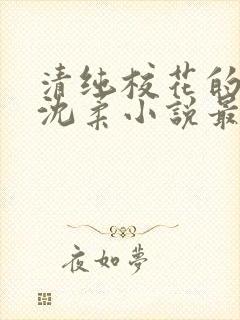 清纯校花的
沈柔小説最
夜如夢